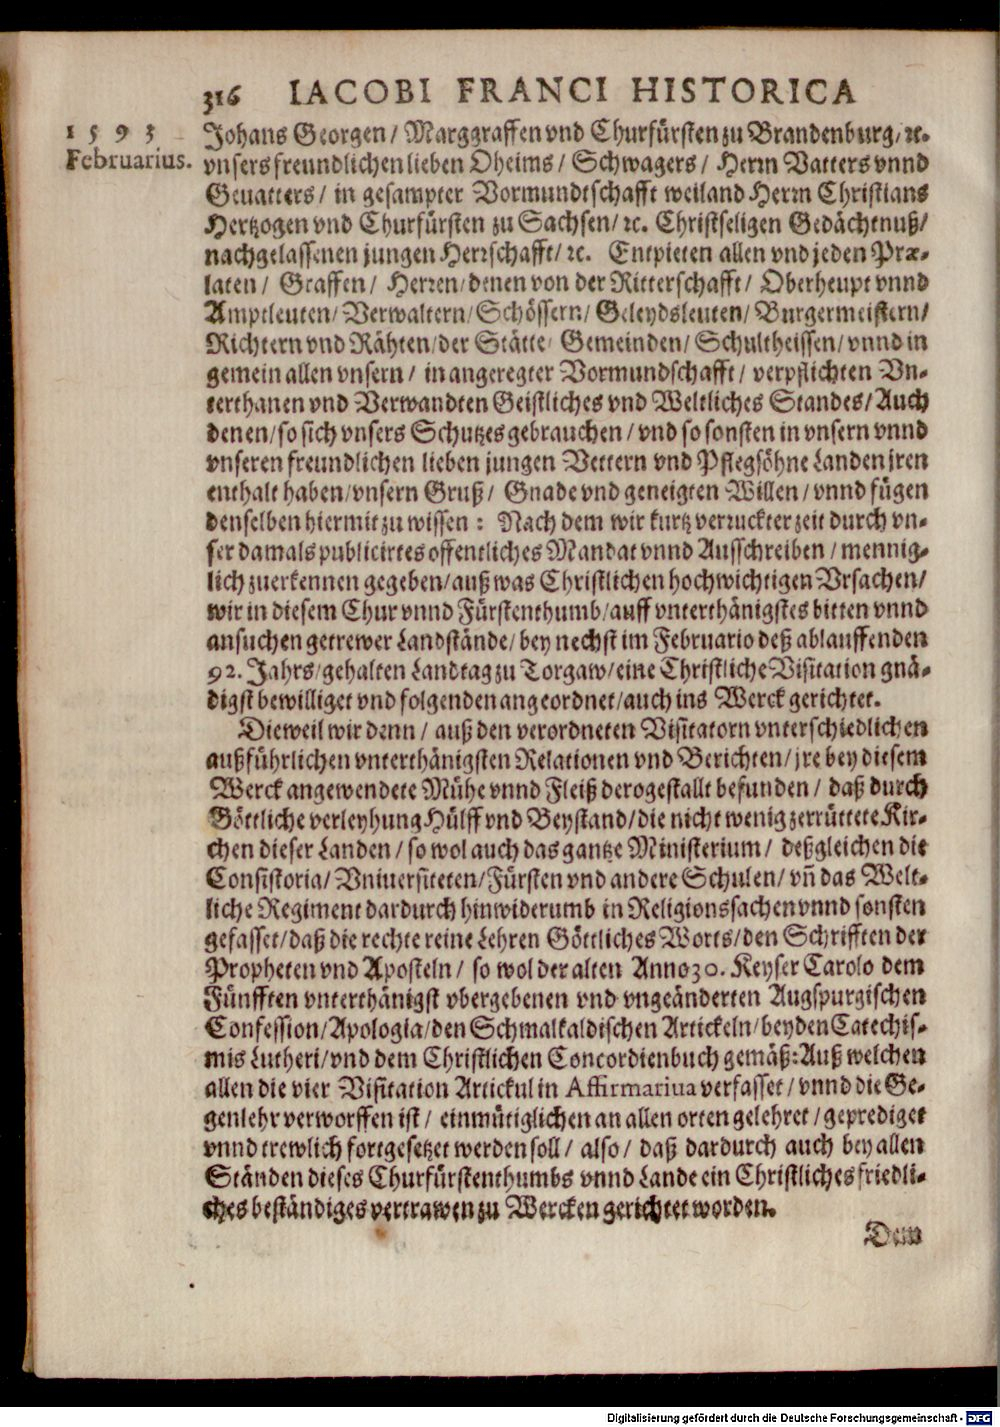 316 IACOBI FRANCI HISTORICA
1593
Februarius.
Johans Georgen/ Marggraffen vnd Churfürsten zu Brandenburg/ ꝛc.
vnsers freundlichen lieben Oheims/ Schwagers/ Herrn Vatters vnnd
Gevatters/ in gesampter Vormundtschafft weiland Herrn Christians
Hertzogen vnd Churfürsten zu Sachsen/ ꝛc. Christseligen Gedächtnuß/
nachgelassenen jungen Herrschafft/ ꝛc. Entpieten allen vnd jeden Præ-
laten/ Graffen/ Herren/ denen von der Ritterschafft/ Oberheupt vnnd
Amptleuten/ Verwaltern/ Schössern/ Geleydsleuten/ Burgermeistern/
Richtern vnd Rähten/ der Stätte/ Gemeinden/ Schultheissen/ vnnd in
gemein allen vnsern/ in angeregter Vormundschafft/ verpflichten Vn-
terthanen vnd Verwandten Geistliches vnd Weltliches Standes/ Auch
denen/ so sich vnsers Schutzes gebrauchen/ vnd so sonsten in vnsern vnnd
vnseren freundlichen lieben jungen Vettern vnd Pflegsöhne Landen jren
enthalt haben/ vnsern Gruß/ Gnade vnd geneigten Willen/ vnnd fügen
denselben hiermit zu wissen: Nach dem wir kurtz verruckter zeit durch vn-
ser damals publicirtes offentliches Mandat vnnd Ausschreiben/ mennig-
lich zuerkennen gegeben/ auß was Christlichen hochwichtigen Vrsachen/
wir in diesem Chur vnnd Fürstenthumb/ auff vnterthänigstes bitten vnnd
ansuchen getrewer Landstände/ bey nechst im Februario deß ablauffenden
92. Jahrs/ gehalten Landtag zu Torgaw/ eine Christliche Visitation gnä-
digst bewilliget vnd folgenden angeordnet/ auch ins Werck gerichtet.
Dieweil wir denn/ auß den verordneten Visitatorn vnterschiedlichen
außführlichen vnterthänigsten Relationen vnd Berichten/ jre bey diesem
Werck angewendete Mühe vnnd Fleiß derogestallt befunden/ daß durch
Göttliche verleyhung Hülff vnd Beystand/ die nicht wenig zerrüttete Kir-
chen dieser Landen/ so wol auch das gantze Ministerium/ deßgleichen die
Consistoria/ Vniuersiteten/ Fürsten vnd andere Schulen/ vñ das Welt-
liche Regiment dardurch hinwiderumb in Religionssachen vnnd sonsten
gefasset/ daß die rechte reine Lehren Göttliches Worts/ den Schrifften der
Propheten vnd Aposteln/ so wol der alten Anno 30. Keyser Carolo dem
Fünfften vnterthänigst vbergebenen vnd vngeänderten Augspurgischen
Confession/ Apologia/ den Schmalkaldischen Artickeln/ beyden Catechis-
mis Lutheri/ vnd dem Christlichen Concordienbuch gemäß: Auß welchen
allen die vier Visitation Artickul in Affirmatiua verfasset/ vnnd die Ge-
genlehr verworffen ist/ einmütiglichen an allen orten gelehret/ geprediget
vnnd trewlich fortgesetzet werden soll/ also/ daß dardurch auch bey allen
Ständen dieses Churfürstenthumbs vnnd Lande ein Christliches friedli-
ches beständiges vertrawen zu Wercken gerichtet worden.
Dem
Digitalisierung gefördert durch die Deutsche Forschungsgemeinschaft - DFG